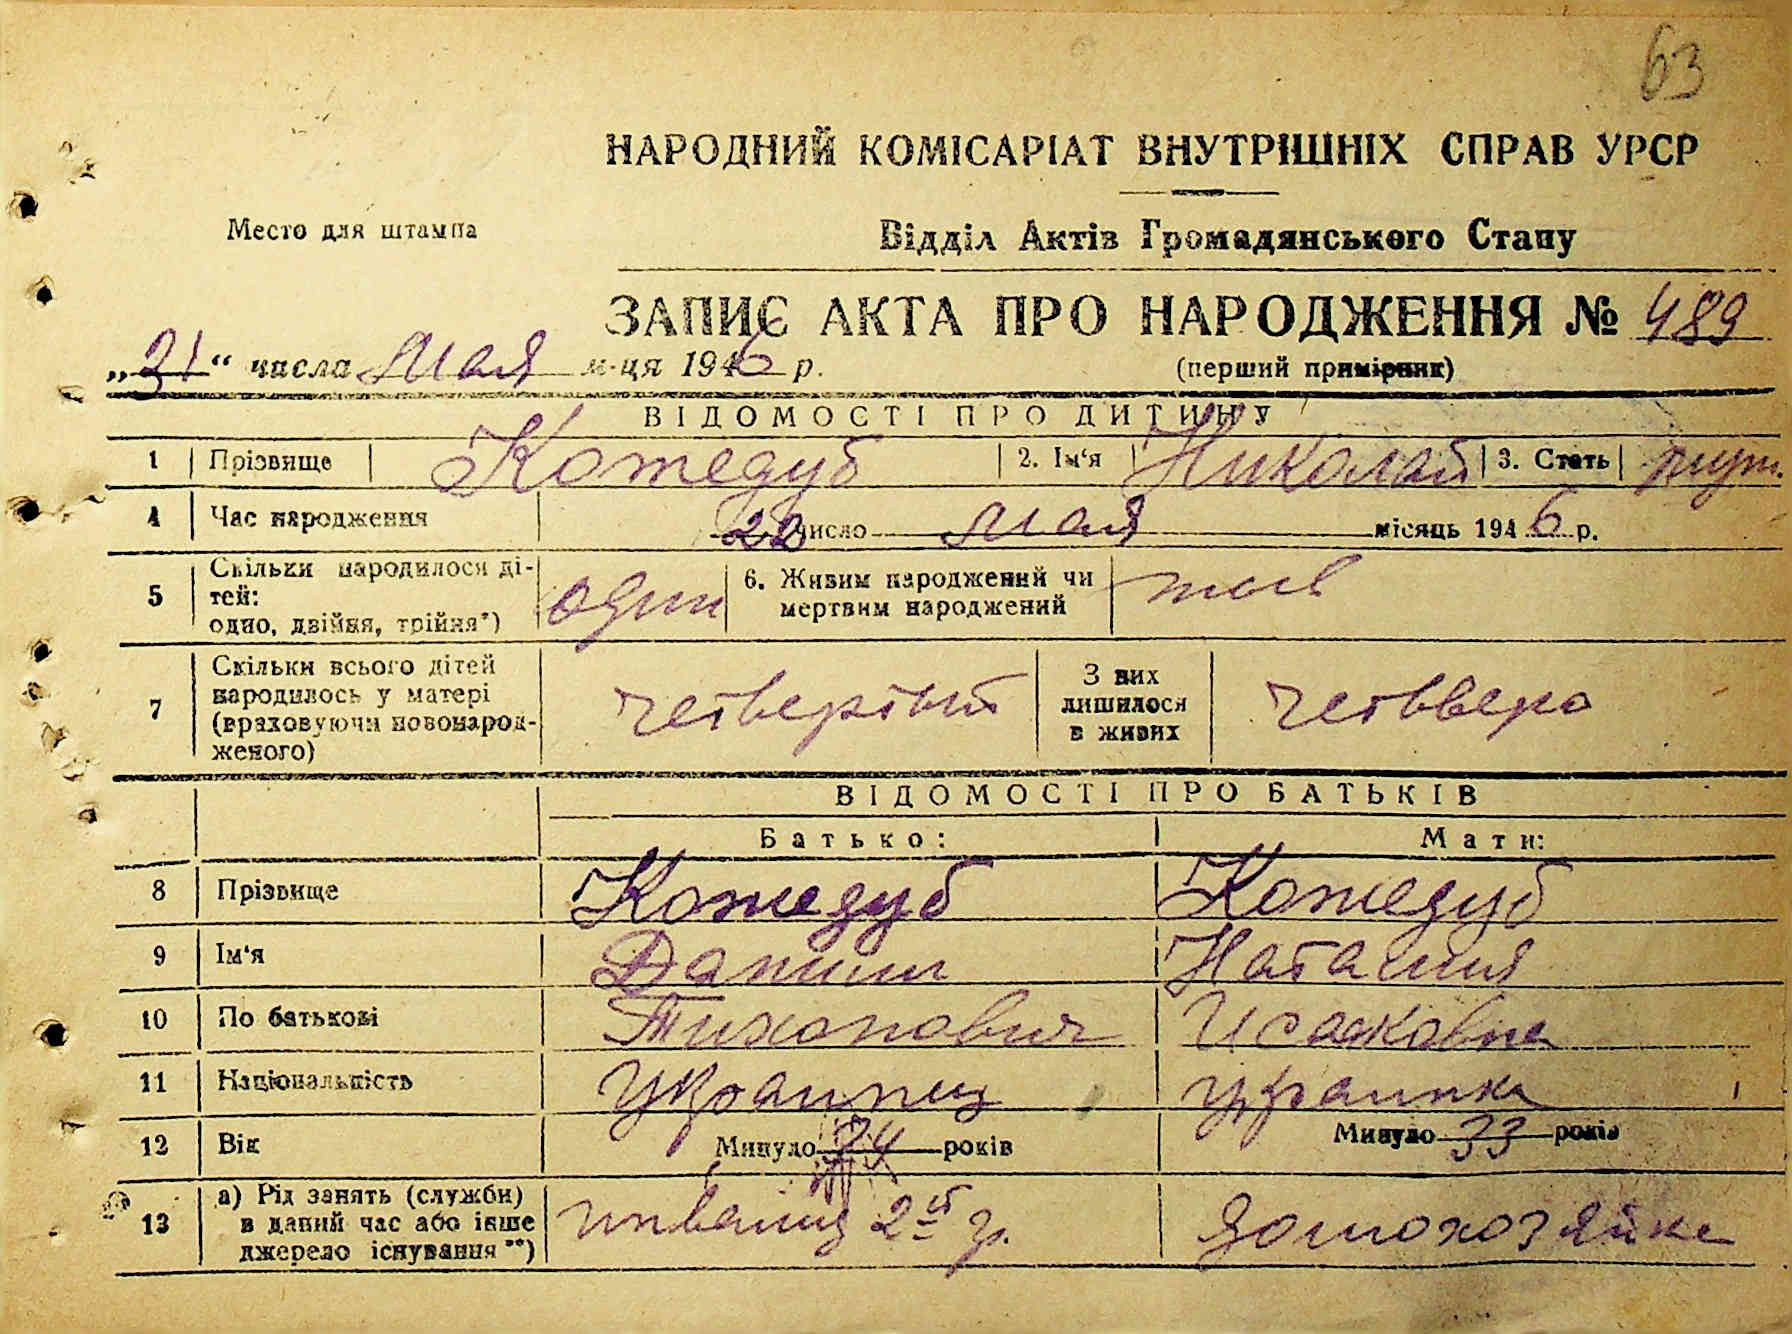 63
НАРОДНИЙ КОМІСАРІАТ ВНУТРІШНІХ СПРАВ УРСР
Место для штампа
Відділ Актів Громадянського Стану
ЗАПИС АКТА ПРО НАРОДЖЕННЯ № 489
„31“ числа мая м-ця 1946 р.
(перший примірник)
ВІДОМОСТІ ПРО ДИТИНУ
1 Прізвище Кожедуб 2. Ім‘я Николай 3. Стать муж.
4 Час народження 22 число мая місяць 1946 р.
5 Скільки народилося ді-
тей:
одно, двійня, трійня*) один
6. Живим народжений чи
мертвим народжений жив
7 Скільки всього дітей
народилось у матері
(враховуючи новонарод-
женого) четвертый
З них
лишилося
в живих четверо
ВІДОМОСТІ ПРО БАТЬКІВ
Батько: Мати:
8 Прізвище Кожедуб Кожедуб
9 Ім‘я Данил Наталия
10 По батькові Тихонович Исаковна
11 Національність Украинец украинка
12 Вік Минуло 34 років Минуло 33 років
13 а) Рід занять (служби)
в даний час або інше
джерело існування **) инвалид 2ой гр. домохозяйка